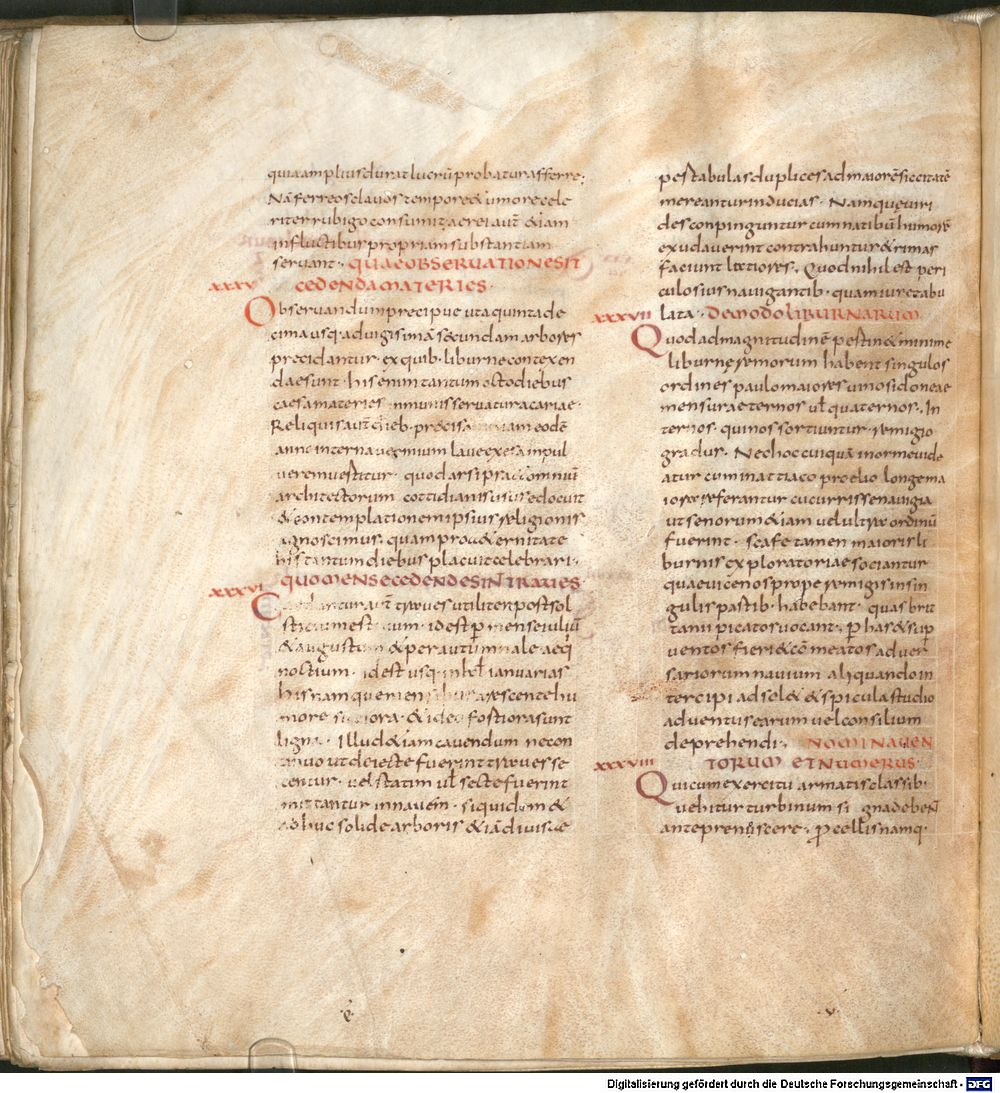 quia amplius durat lucrū probatur afferre;
Nā ferreos clavos tempore & umore cele
riter rubigo consumit aerei aut̄ &iam
influctibus propriam substantiam
servant. QUAE OBSERVATIONE SIT
XXXV CEDENDA MATERIES.
Observandum precipue ut a quintade
cima usq. ad vigisimā secundam arbores
precidantur. ex quib. liburne contexen
dae sunt. his enim tantum octo diebus
caesa materies inmunis servatur acariae.
Reliquis aut̄ dieb. precisa etiam eodē
anno interna vermium lave exesa inpul
verem vestitur. quod ars ipsa & omniū
architectorum cottidianis usus edocuit
& contemplatione mipsius religionis
agnoscimus. quam pro &ernitate
his tantum diebus placuit celebrari.
QUO MENSE CEDENDE SINT TRAVES
XXXVI
Caeduntur aut̄ trabes utiliter post sol
stitium est ivum. id est p̄ mense iuliū
& augustum & per autumnale aeq̄
noctium. id est usq. in kl̄ ianuarias
his namque mensibus arescente hu
more sicciora. & ideo fortiora sunt
ligna. Illud &iam cavendum ne con
tinuo ut deiecte fuerint trabes se
centur. vel statim ut̄ secte fuerint
mittantur in navem. siquidem &
adhuc solide arboris & iā divise
pertabulas duplices ad maiorē siccitatē
mereantur inducias. Nam que viri
des conpinguntur cum natibū humorē
exudaverint contrahuntur & rimas
faciunt latiores. Quod nihil est peri
culosius navigantib. quam viretabu
lata. DE MODO LIBURNARUM
XXXVII
Quod ad magnitudinē pertin& minime
liburne remorum habent singulos
ordines paulo maiores vinos idoneae
mensurae ternos vl̄ quaternos. In
ternos. quinos sortiuntur remigio
gradus. Nec hoc cuiquā inorme vide
atur cum in attiaco proelio longe ma
iora referantur cucurrisse navigia
ut senorum &iam vel ultra ordinū
fuerint. scafe tamen maioris li
burnis exploratoriae sociantur
quae vicenos prope remigis insin
gulis partib. habebant. quas brit
tani picatos vocant. p̄ has & sup̄
ventos fieri & cōmeatos adver
sariorum navium aliquando in
tercipi adsol& & spicula studio
adventus earum vel consilium
deprehendi. NOMINA VEN
XXXVIII TORUM ET NUMERUS.
Qui cum exercitu armatis classib.
vehitur turbinum signa deben̄
ante prenoscere. p̄cellis namq.